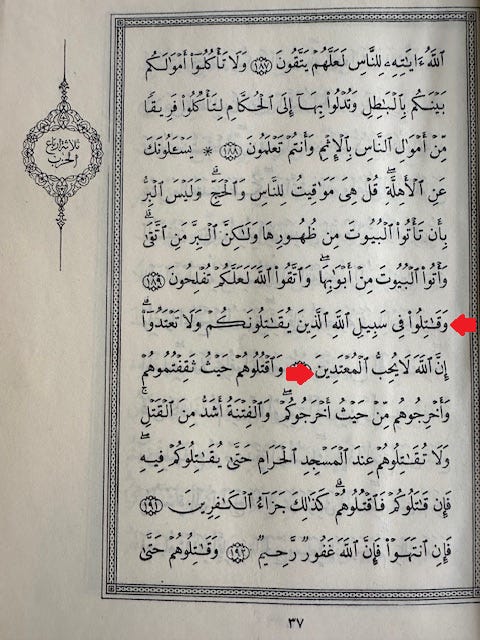 ٱللَّهُ ءَايَٰتِهِۦ لِلنَّاسِ لَعَلَّهُمْ يَتَّقُونَ ١٨٧ وَلَا تَأْكُلُوٓا۟ أَمْوَٰلَكُم
بَيْنَكُم بِٱلْبَٰطِلِ وَتُدْلُوا۟ بِهَآ إِلَى ٱلْحُكَّامِ لِتَأْكُلُوا۟ فَرِيقًا
مِّنْ أَمْوَٰلِ ٱلنَّاسِ بِٱلْإِثْمِ وَأَنتُمْ تَعْلَمُونَ ١٨٨ * يَسْـَٔلُونَكَ
عَنِ ٱلْأَهِلَّةِۖ قُلْ هِىَ مَوَٰقِيتُ لِلنَّاسِ وَٱلْحَجِّۗ وَلَيْسَ ٱلْبِرُّ
بِأَن تَأْتُوا۟ ٱلْبُيُوتَ مِن ظُهُورِهَا وَلَٰكِنَّ ٱلْبِرَّ مَنِ ٱتَّقَىٰۗ
وَأْتُوا۟ ٱلْبُيُوتَ مِنْ أَبْوَٰبِهَاۚ وَٱتَّقُوا۟ ٱللَّهَ لَعَلَّكُمْ تُفْلِحُونَ ١٨٩
وَقَٰتِلُوا۟ فِى سَبِيلِ ٱللَّهِ ٱلَّذِينَ يُقَٰتِلُونَكُمْ وَلَا تَعْتَدُوٓا۟ۚ
إِنَّ ٱللَّهَ لَا يُحِبُّ ٱلْمُعْتَدِينَ وَٱقْتُلُوهُمْ حَيْثُ ثَقِفْتُمُوهُمْ
وَأَخْرِجُوهُم مِّنْ حَيْثُ أَخْرَجُوكُمْۚ وَٱلْفِتْنَةُ أَشَدُّ مِنَ ٱلْقَتْلِۚ
وَلَا تُقَٰتِلُوهُمْ عِندَ ٱلْمَسْجِدِ ٱلْحَرَامِ حَتَّىٰ يُقَٰتِلُوكُمْ فِيهِۖ
فَإِن قَٰتَلُوكُمْ فَٱقْتُلُوهُمْۗ كَذَٰلِكَ جَزَآءُ ٱلْكَٰفِرِينَ ١٩١
فَإِنِ ٱنتَهَوْا۟ فَإِنَّ ٱللَّهَ غَفُورٌ رَّحِيمٌ ١٩٢ وَقَٰتِلُوهُمْ حَتَّىٰ
ثلاثة ارباع
الحزب
٣٧